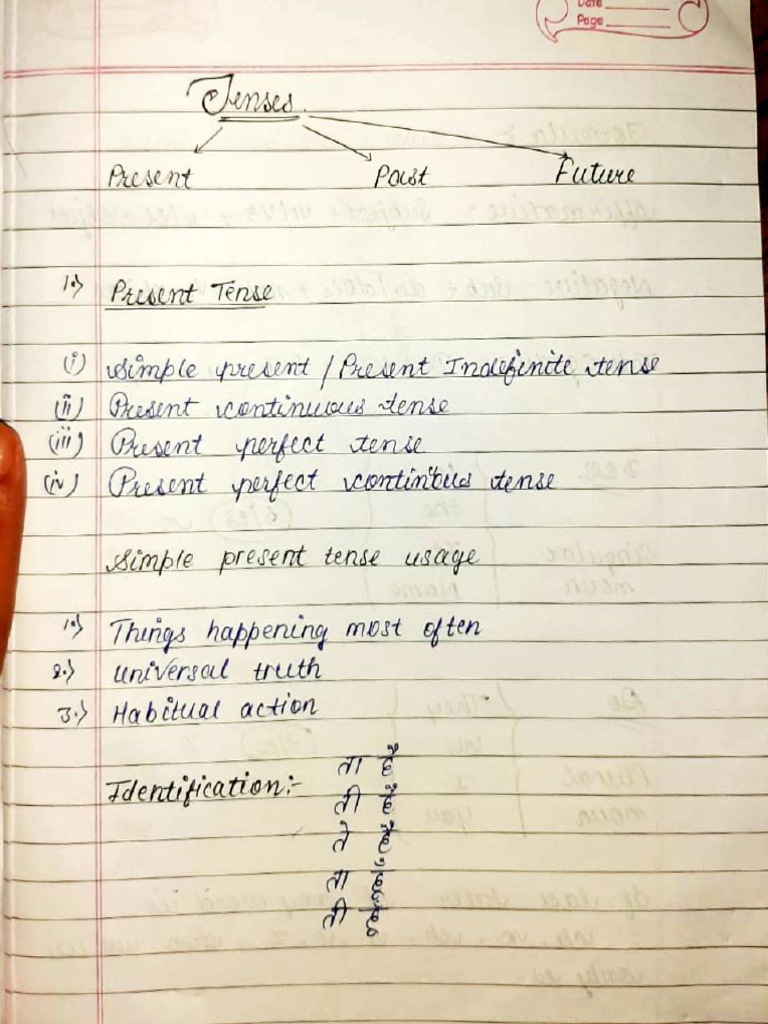 Date
Page
Tenses.
Present Past Future
1.) Present Tense
(i) Simple present / Present Indefinite tense
(ii) Present continuous tense
(iii) Present perfect tense
(iv) Present perfect continuous tense
Simple present tense usage
1.) Things happening most often
2.) Universal truth
3.) Habitual action
Identification:- ता है
ती है
ते हैं
ता हूँ
ती हूँ